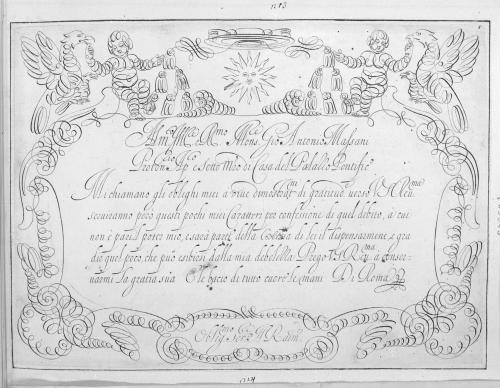 1713
All Ill.mo et R.mo Mons. Gio Antonio Massani
Proton. Ap.co e Sotto M.ro di Casa del Palazzo Pontific
Mi chiamano gli oblighi miei a dimostrat.ni di gratitud. verso VS Ill.ma
seruiranno poco questi pochi miei Caratteri per confessione di quel debito, a cui
non è pari il poter mio, e sarà parte della di lei il dispensarmene, e gra
dir quel poco, che può esibirsi dalla mia debolezza Prego VS R.ma a conser
uarmi la gratia sua E le bacio di tutto cuore le mani Di Roma
Oblig.mo Ser.
1714